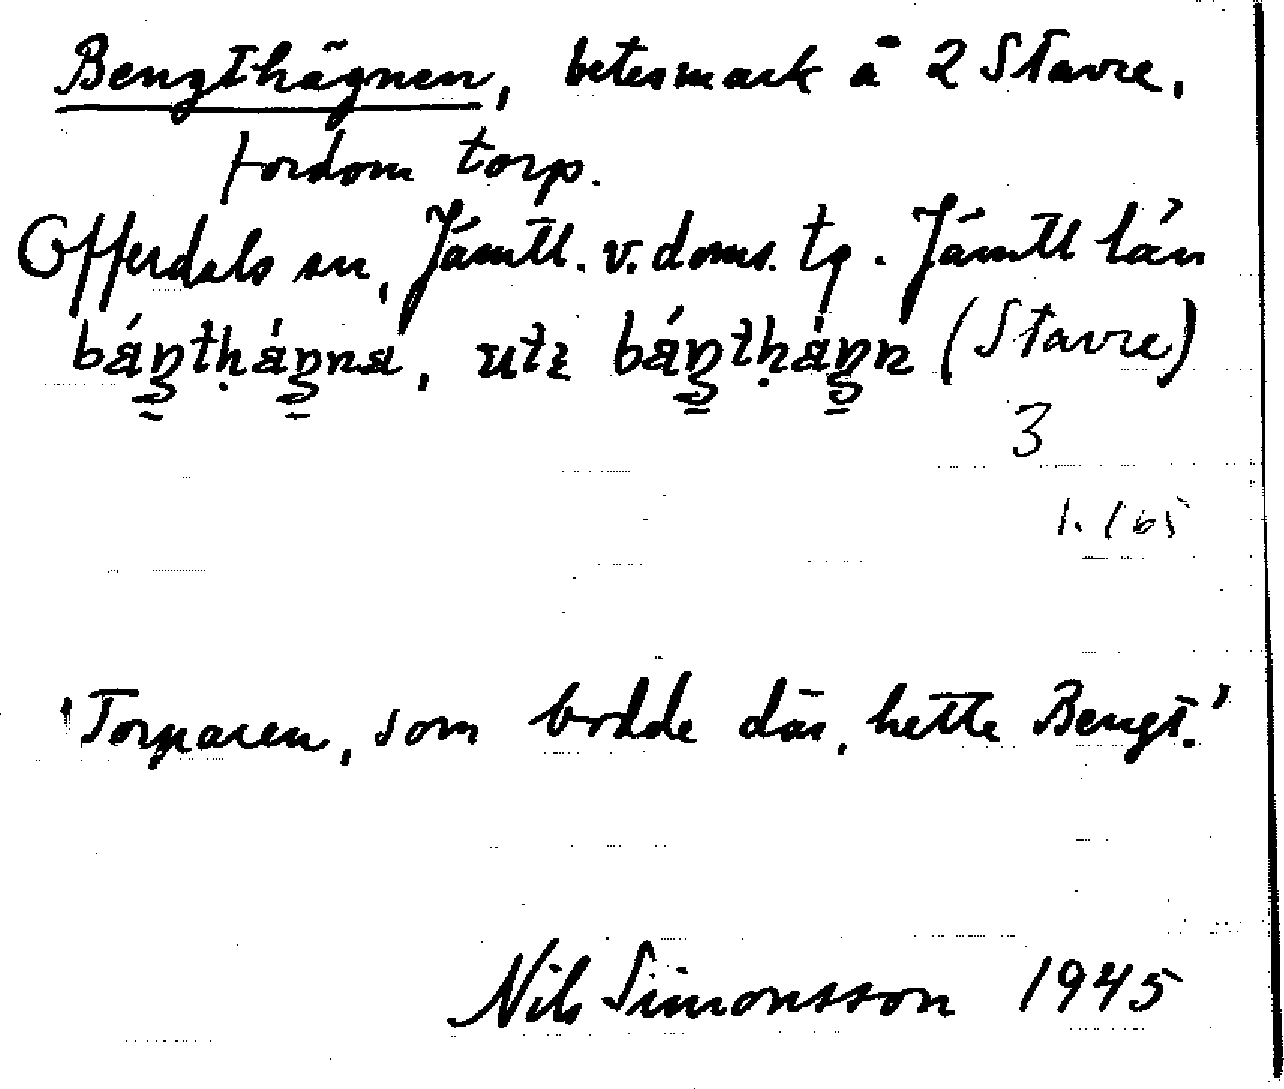 Bengthägnen, betesmark å 2 Stavre,
fordom torp.
Offerdals sn, Jämtl. v. doms. tg. Jämtl län
(Stavre)
3
1. 165
'Torparen, som bodde där, hette Bengt.'
Nils Simonsson 1945